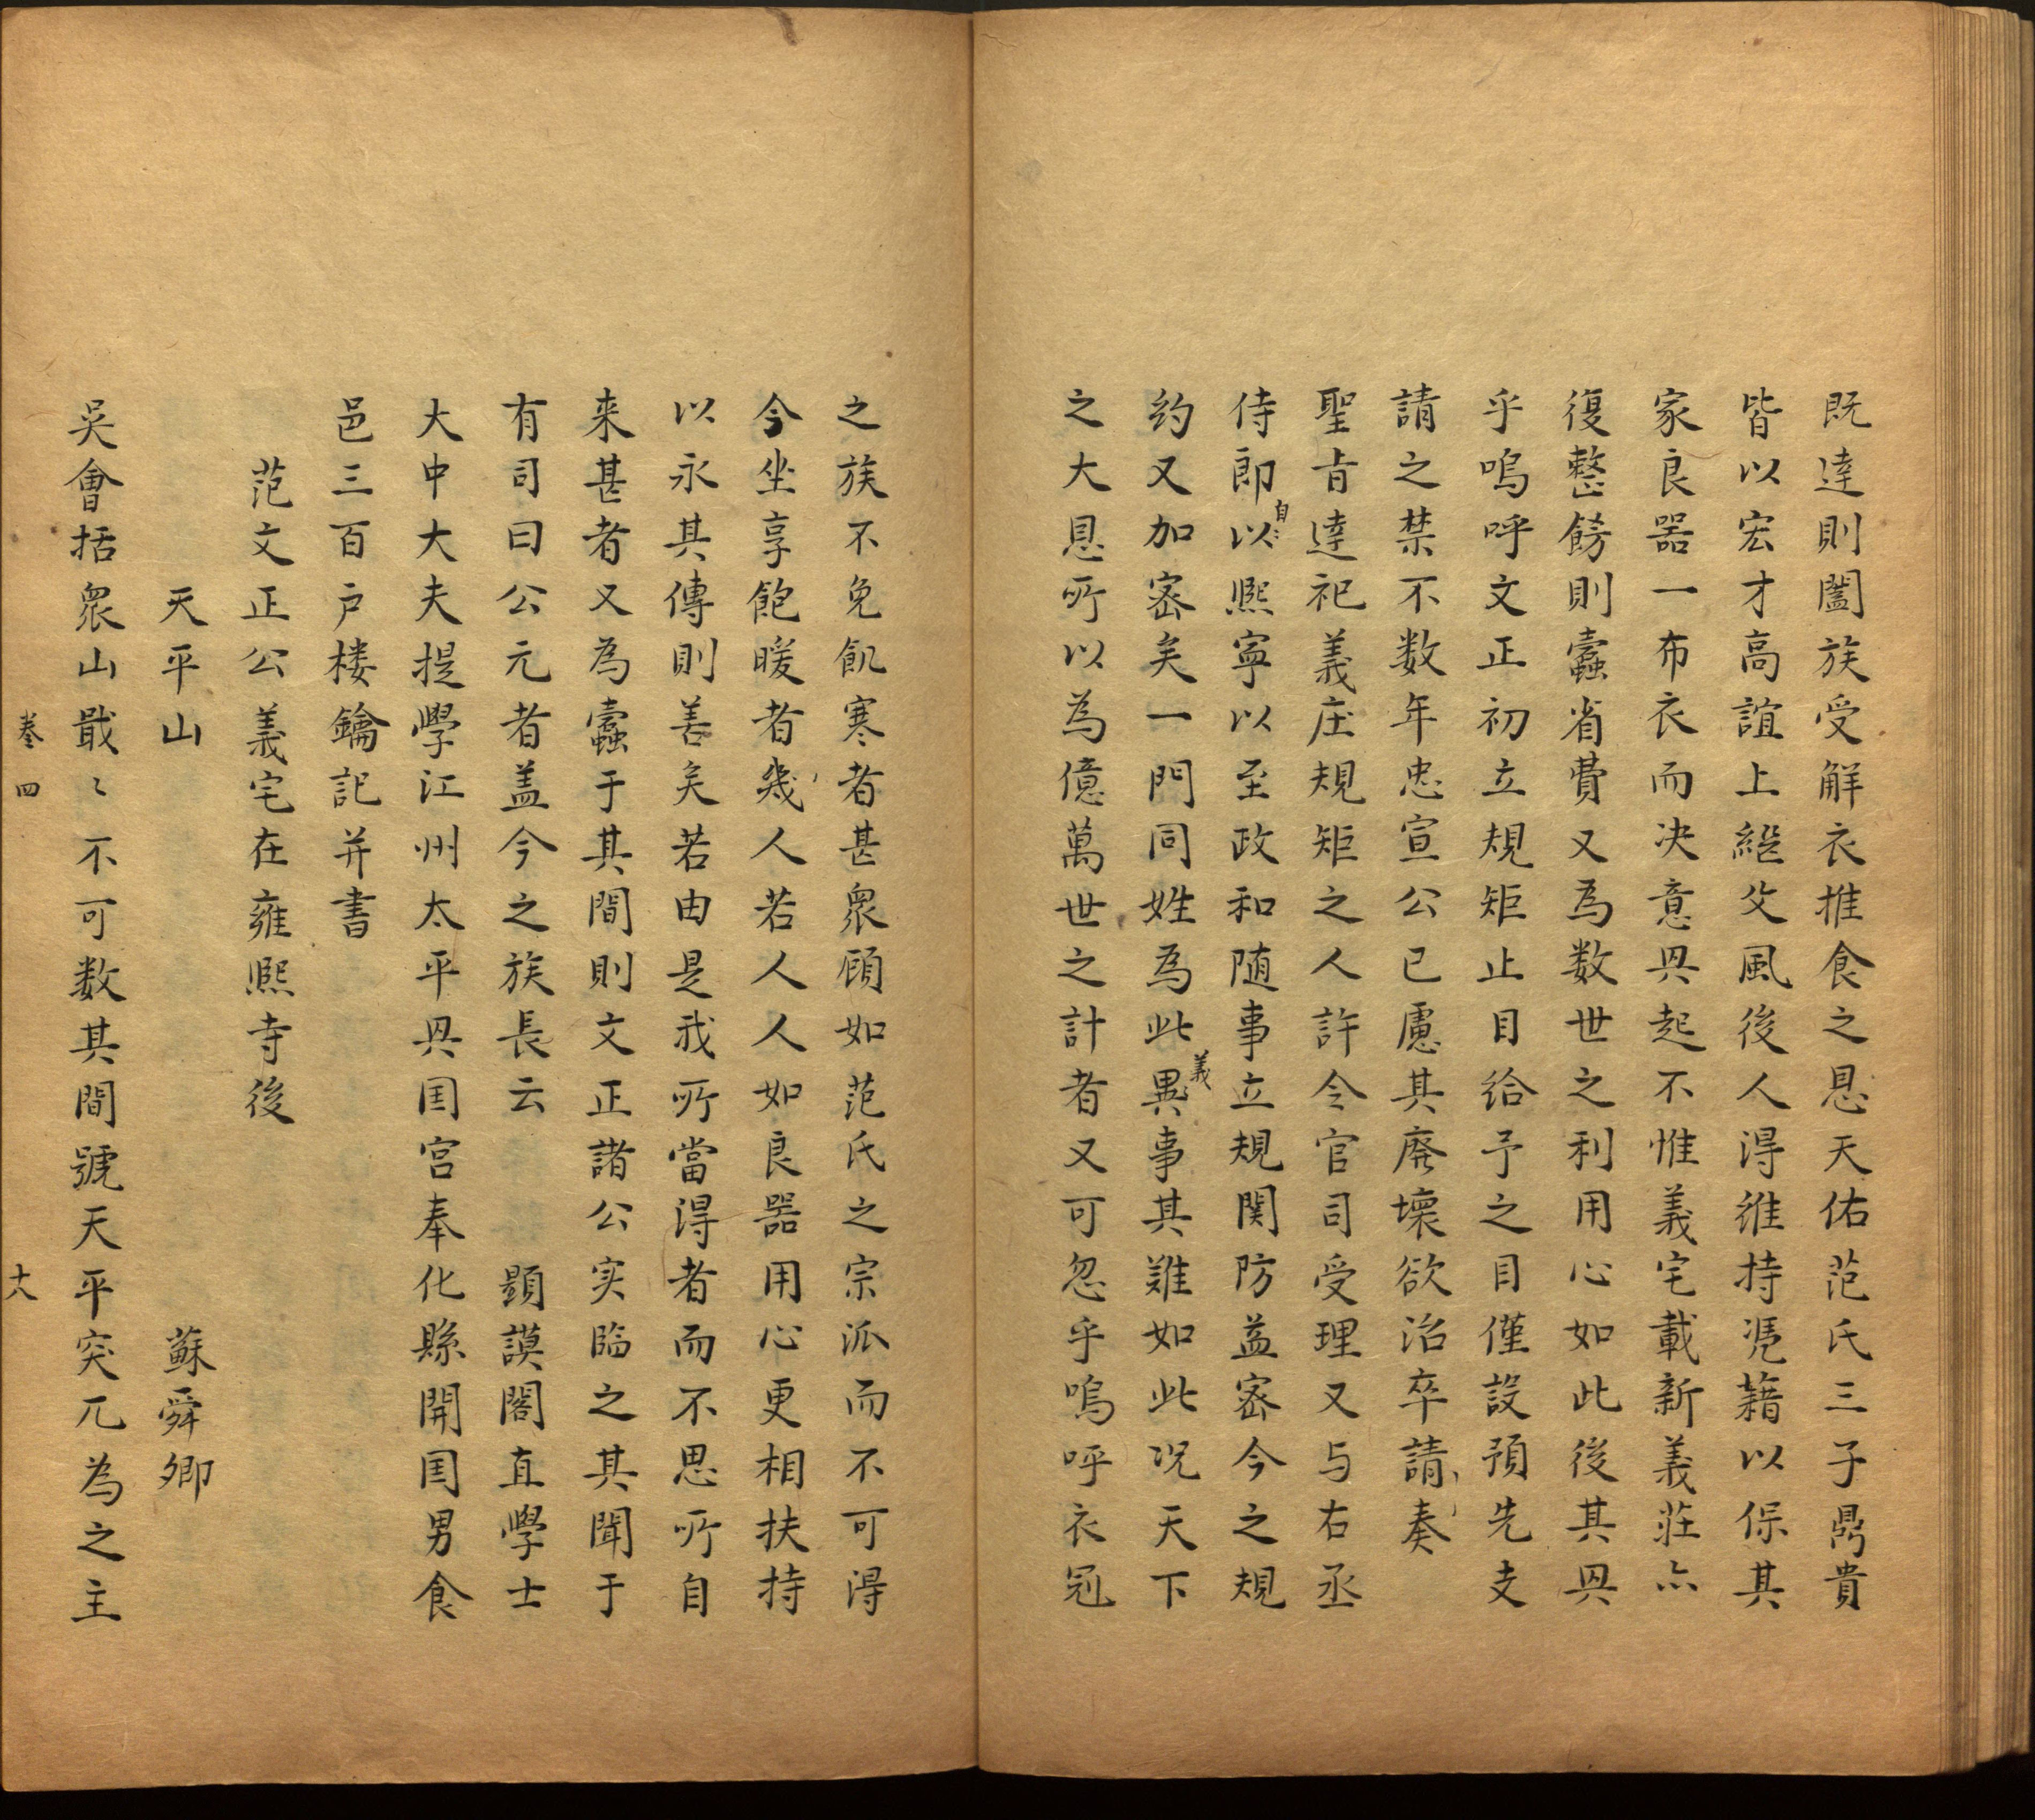 既達則闔族受解衣推食之恩天佑范氏三子鼎貴
皆以宏才高誼上継父風後人得維持慿藉以保其
家良器一布衣而决意興起不惟義宅載新義莊亦
復整餝則蠧省費又為数世之利用心如此後其興
乎嗚呼文正初立規矩止目給予之目僅設預先支
請之禁不数年忠宣公已慮其廢壞欲治卒請奏
聖旨違祀義庄規矩之人許令官司受理又与右丞
侍郎自以熙寧以至政和随事立規関防益宻今之規
約又加宻矣一門同姓為此異義事其難如此况天下
之大恩所以為億萬世之計者又可忽乎嗚呼衣冠
之族不免飢寒者甚衆顧如范氏之宗派而不可得
今坐享飽暖者幾人若人人如良器用心更相扶持
以永其傳則善矣若由是我所當得者而不思所自
来甚者又為蠧于其間則文正諸公实臨之其聞于
有司曰公元者盖今之族長云 顕謨閣直學士
大中大夫提學江州太平興国宫奉化縣開国男食
邑三百户楼鑰記并書
范文正公義宅在雍熙寺後
天平山 蘇舜卿
吳會括衆山戢〻不可数其間號天平突兀為之主
卷四 十八